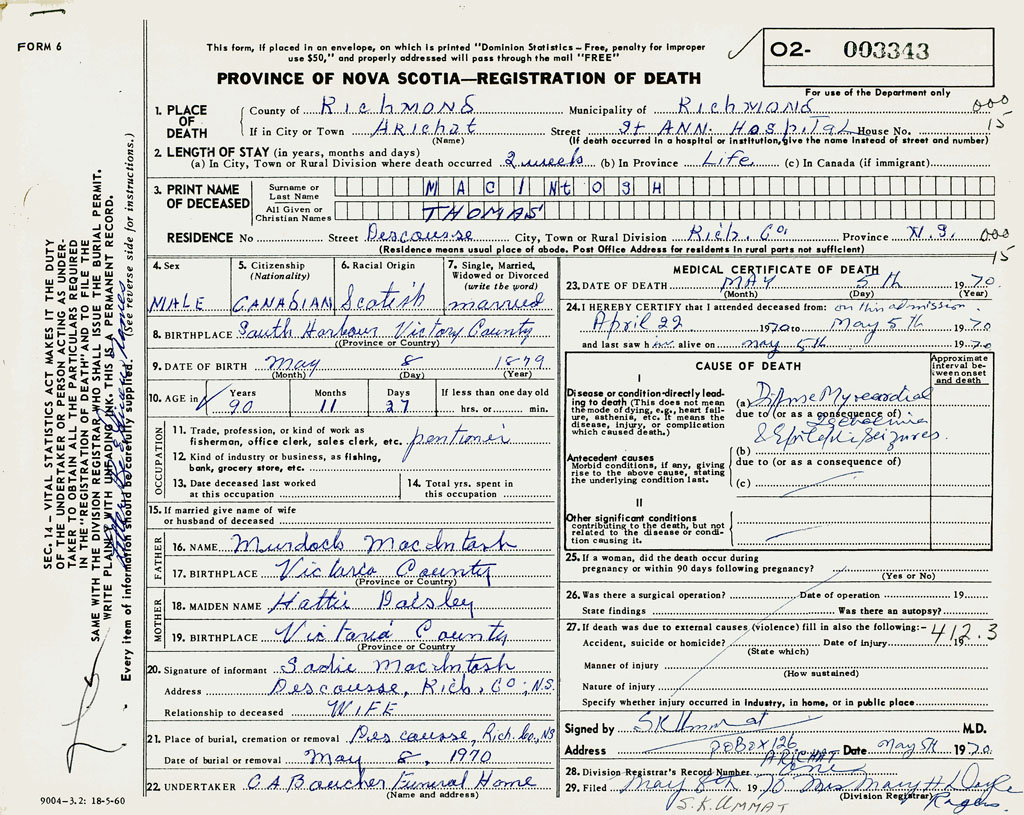 FORM 6
This form, if placed in an envelope, on which is printed "Dominion Statistics – Free, penalty for improper
use $50," and properly addressed will pass through the mail "FREE"
PROVINCE OF NOVA SCOTIA—REGISTRATION OF DEATH
O2- 003343
For use of the Department only
1. PLACE OF DEATH
County of RichMOND Municipality of RichMOND
000
If in City or Town ARichat Street St ANN. HospitAL House No.
15
(Name) (If death occurred in a hospital or institution, give the name instead of street and number)
2. LENGTH OF STAY (in years, months and days)
(a) In City, Town or Rural Division where death occurred 2 weeks (b) In Province Life (c) In Canada (if immigrant)
3. PRINT NAME OF DECEASED
Surname or Last Name MACINtOSH
All Given or Christian Names THOMAS
RESIDENCE No Street Descousse City, Town or Rural Division Rich. Co. Province N.S. 000
(Residence means usual place of abode. Post Office Address for residents in rural parts not sufficient)
15
4. Sex
MALE
5. Citizenship (Nationality)
CANADIAN
6. Racial Origin
Scotish
7. Single, Married, Widowed or Divorced (write the word)
married
8. BIRTHPLACE South Harbour Victory County
(Province or County)
9. DATE OF BIRTH May 8 1879
(Month) (Day) (Year)
10. AGE in
Years Months Days If less than one day old
90 11 27 hrs. or min.
OCCUPATION
11. Trade, profession, or kind of work as
fisherman, office clerk, sales clerk, etc. pentioner
12. Kind of industry or business, as fishing,
bank, grocery store, etc.
13. Date deceased last worked
at this occupation
14. Total yrs. spent in
this occupation
15. If married give name of wife
or husband of deceased
FATHER
16. NAME Murdock MacIntosh
17. BIRTHPLACE Victoria County
(Province or County)
MOTHER
18. MAIDEN NAME Hattie Paisley
19. BIRTHPLACE Victoria County
(Province or County)
20. Signature of informant Sadie MacIntosh
Address Descousse, Rich. Co; N.S
Relationship to deceased WIFE
21. Place of burial, cremation or removal Descousse, Rich. Co, NS
Date of burial or removal May 8, 1970
22. UNDERTAKER C A Boucher Funeral Home
(Name and address)
MEDICAL CERTIFICATE OF DEATH
23. DATE OF DEATH MAY 5th 1970
(Month) (Day) (Year)
24. I HEREBY CERTIFY that I attended deceased from: on this admission
April 22 1970 to May 5th 1970
and last saw him alive on May 5th 1970
CAUSE OF DEATH
Approximate
interval be-
tween onset
and death
I
Disease or condition directly lead-
ing to death (This does not mean
the mode of dying, e.g., heart fail-
ure, asthenia, etc. It means the
disease, injury, or complication
which caused death.)
(a) Diffuse Myocardial
due to (or as a consequence of)
Ischaemia
& Epileptic Seizures.
(b)
Antecedent causes
Morbid conditions, if any, giving
rise to the above cause, stating
the underlying condition last.
due to (or as a consequence of)
(c)
II
Other significant conditions
contributing to the death, but not
related to the disease or condi-
tion causing it.
25. If a woman, did the death occur during
pregnancy or within 90 days following pregnancy?
(Yes or No)
26. Was there a surgical operation? Date of operation 19
State findings Was there an autopsy?
27. If death was due to external causes (violence) fill in also the following:-
412.3
Accident, suicide or homicide? Date of injury 19
(State which)
Manner of injury
(How sustained)
Nature of injury
Specify whether injury occurred in industry, in home, or in public place
Signed by SKUmmat M.D.
Address P.O BOX 126 ARICHAT Date May 5th 1970
28. Division Registrar's Record Number
29. Filed May 8th 1970 Mrs Mary H
(Division Registrar)
S.K.UMMAT
SEC. 14 – VITAL STATISTICS ACT MAKES IT THE DUTY
OF THE UNDERTAKER OR PERSON ACTING AS UNDER-
TAKER TO OBTAIN ALL THE PARTICULARS REQUIRED
IN THE "REGISTRATION OF DEATH" AND TO FILE THE
SAME WITH THE DIVISION REGISTRAR WHO SHALL ISSUE THE BURIAL PERMIT.
WRITE PLAINLY WITH UNFADING INK. THIS IS A PERMANENT RECORD.
Every item of information should be carefully supplied. (See reverse side for instructions.)
9004-3.2: 18-5-60